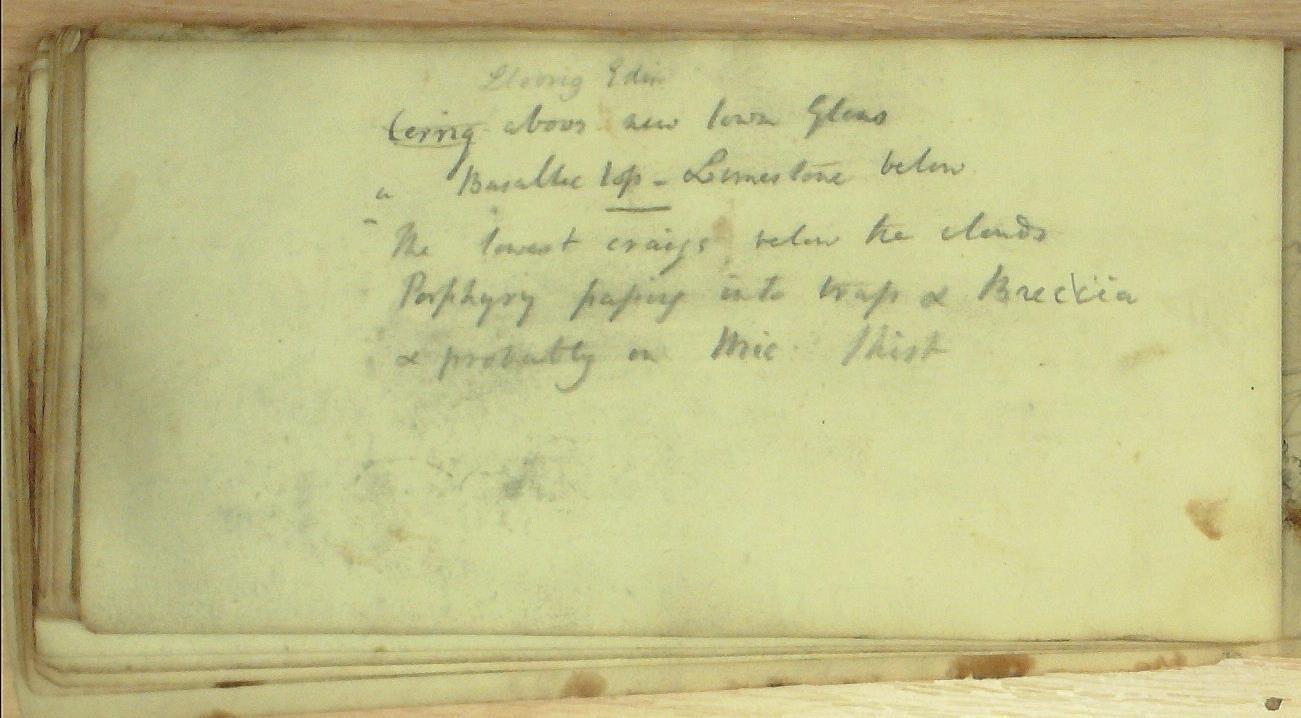 Craig above new town Glens
a Basaltic top - Limestone below
The lowest craigs below the clouds
Porphyry passing into trap & Breccia
& probably on Mic Shist